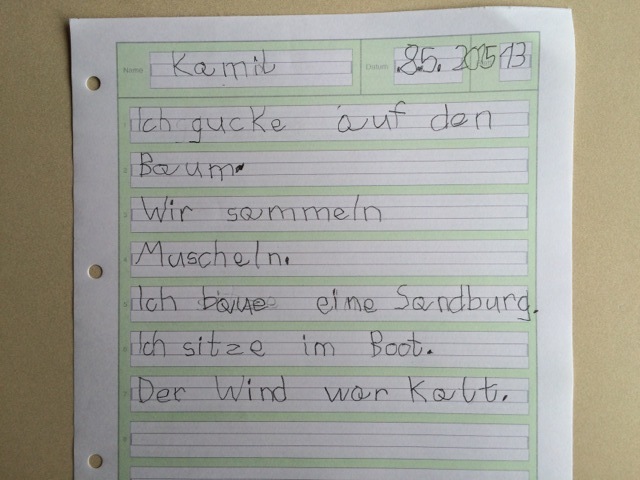 Name Kamil Datum 8.5.2015 13
1 Ich gucke auf den
2 Baum.
3 Wir sammeln
4 Muscheln.
5 Ich baue eine Sandburg.
6 Ich sitze im Boot.
7 Der Wind war kalt.
8